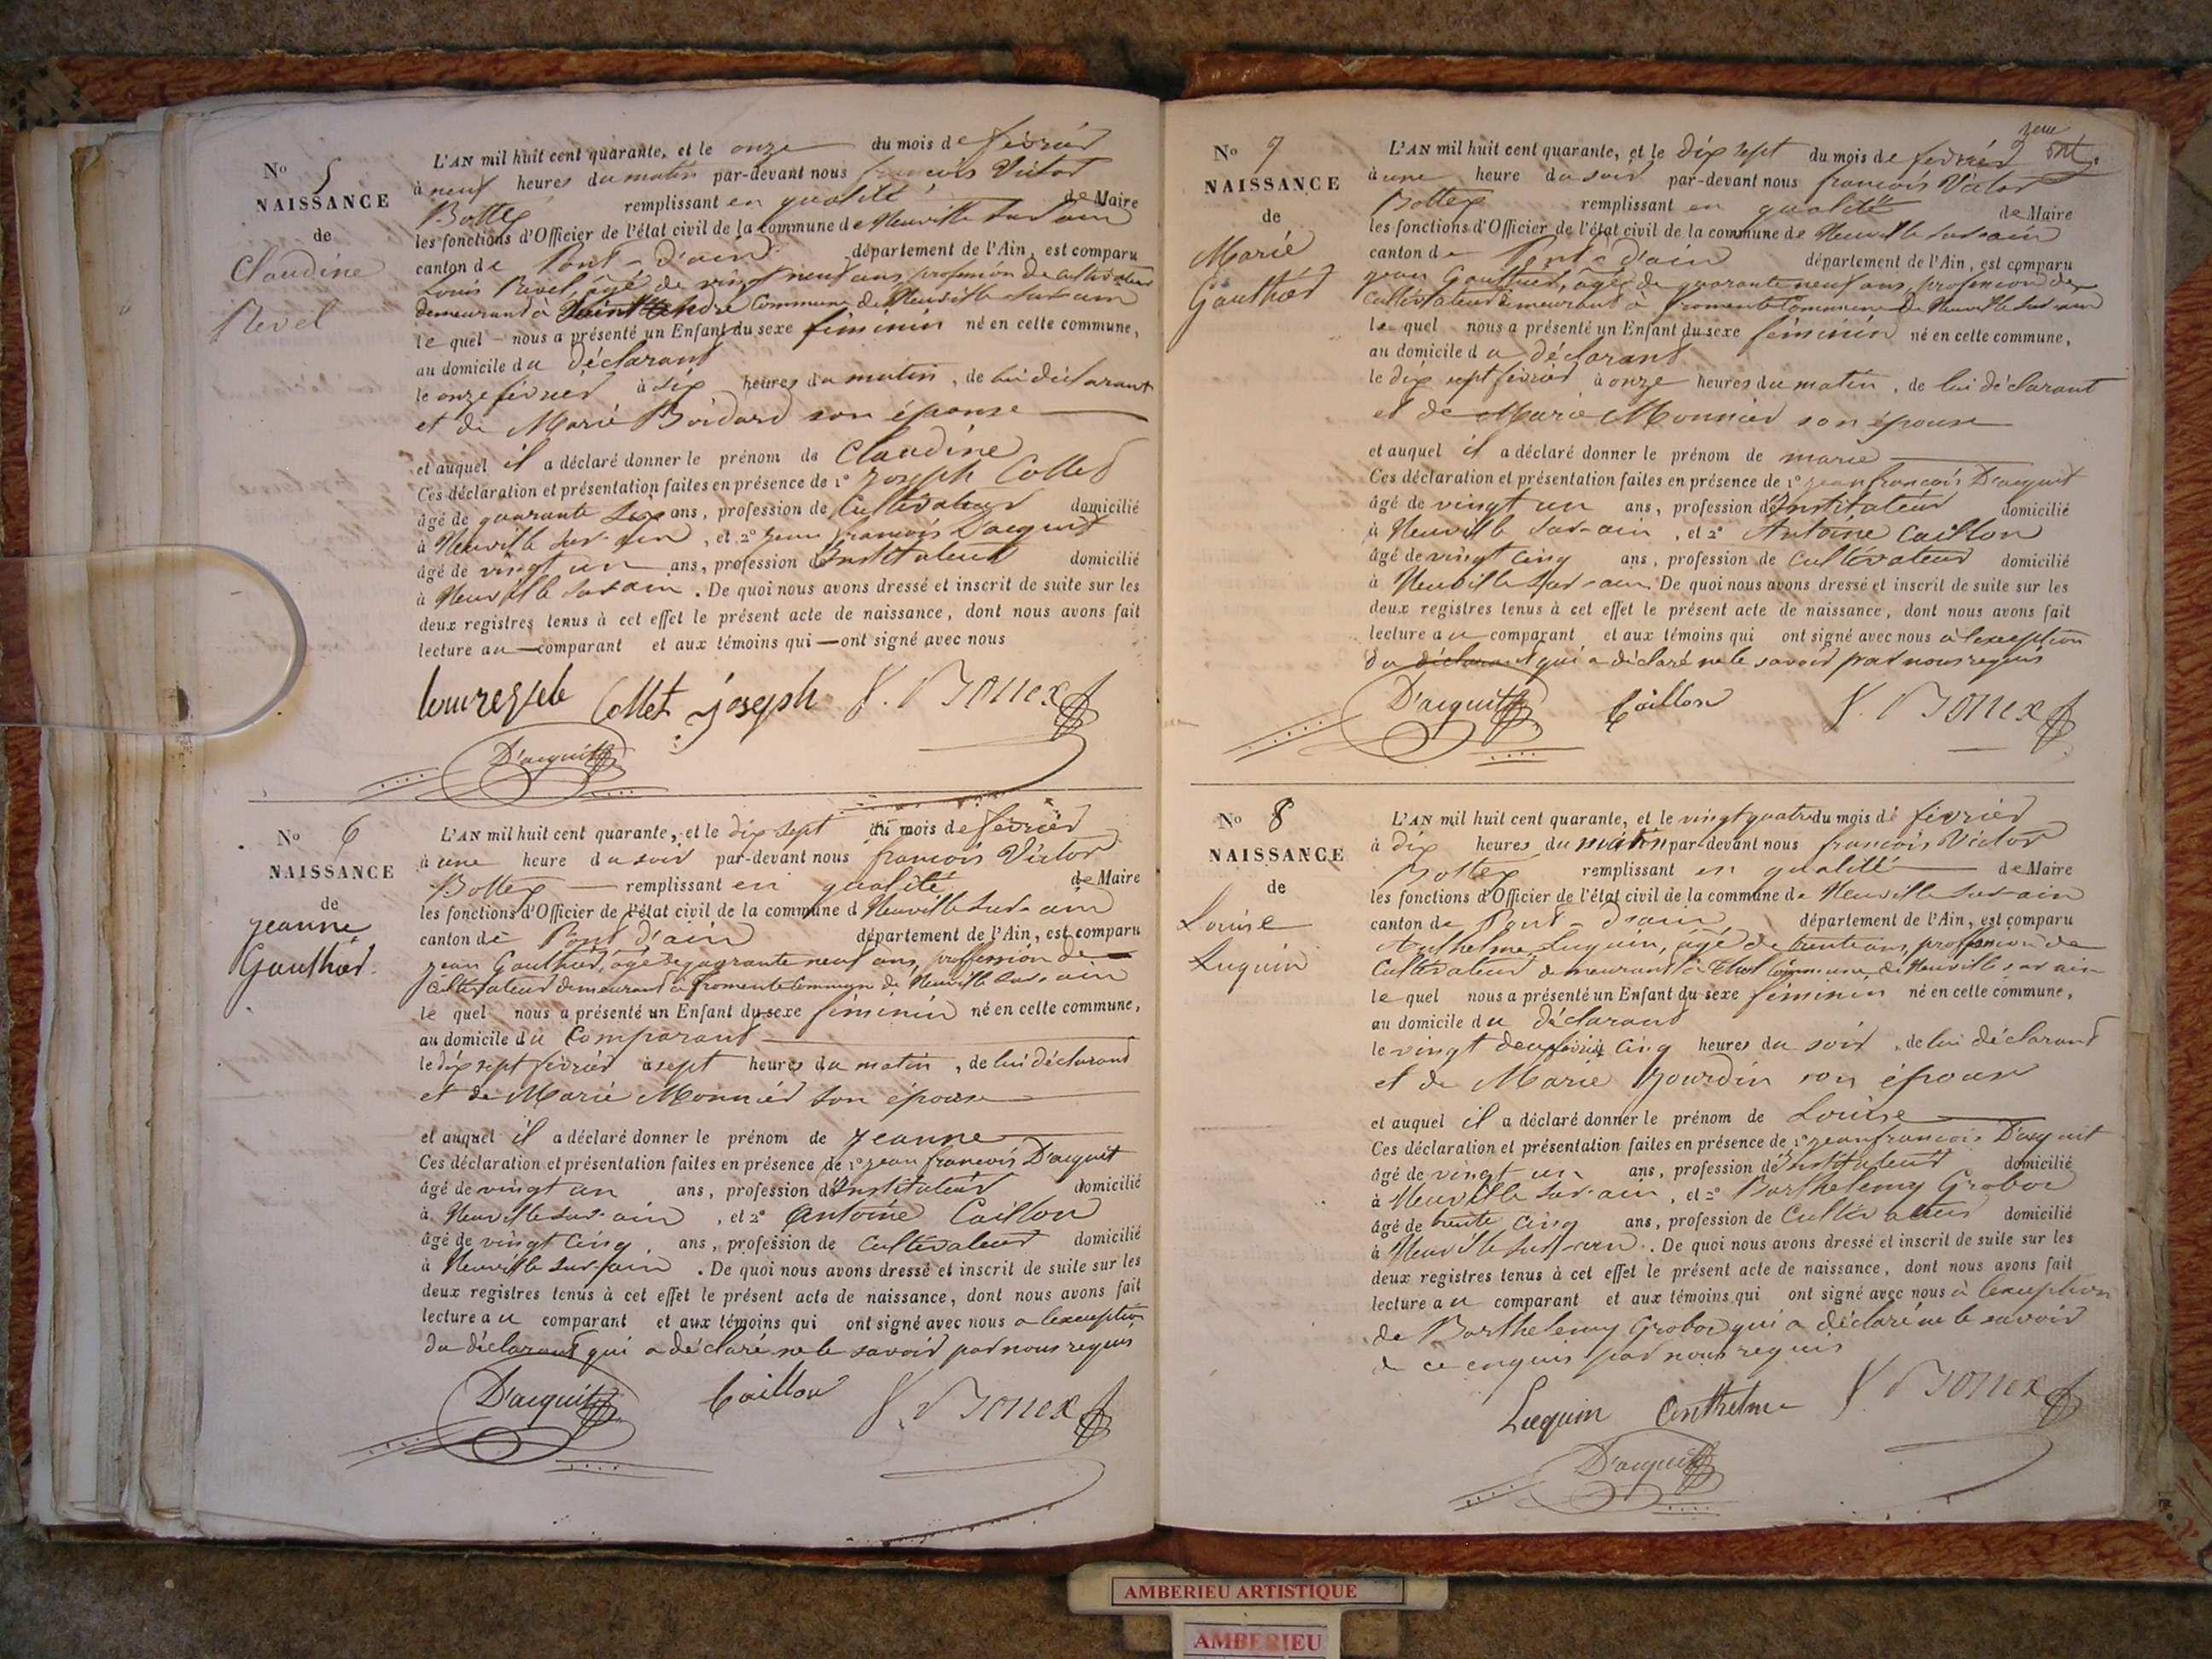 No 5
NAISSANCE
de
Claudine
Revel
L'AN mil huit cent quarante, et le onze du mois de février
à neuf heures du matin par-devant nous françois Victor
Bottex remplissant en qualité de Maire
les fonctions d'Officier de l'état civil de la commune de Neuville sur ain
canton de Pont-d'ain département de l'Ain, est comparu
Louis Revel, agé de vingt neuf ans, profession de cultivateur
demeurant à Saint andré Commune de Neuville sur ain
le quel nous a présenté un Enfant du sexe féminin né en cette commune,
au domicile du déclarant
le onze février à six heures du matin, de lui déclarant
et de Marie Boidard son épouse
et auquel il a déclaré donner le prénom de Claudine
Ces déclaration et présentation faites en présence de 1° joseph Collet
âgé de quarante six ans, profession de Cultivateur domicilié
à Neuville sur-ain, et 2° jean françois D'acquit
âgé de vingt un ans, profession d'Instituteur domicilié
à Neuville sur ain. De quoi nous avons dressé et inscrit de suite sur les
deux registres tenus à cet effet le présent acte de naissance, dont nous avons fait
lecture au comparant et aux témoins qui ont signé avec nous
Collet joseph V. Bottex
D'acquit
No 6
NAISSANCE
de
jeanne
Gauthier
L'AN mil huit cent quarante, et le dix sept du mois de février
à une heure du soir par-devant nous françois Victor
Bottex remplissant en qualité de Maire
les fonctions d'Officier de l'état civil de la commune d Neuville sur-ain
canton de Pont d'ain département de l'Ain, est comparu
jean Gauthier, agé de quarante neuf ans, proffession de
Cultivateur demeurant à fromente Commune de Neuville sur-ain
le quel nous a présenté un Enfant du sexe féminin né en cette commune,
au domicile du Comparant
le dix sept février à sept heures du matin, de lui déclarant
et de Marie Monnier son épouse
et auquel il a déclaré donner le prénom de jeanne
Ces déclaration et présentation faites en présence de 1° jean françois D'acquit
âgé de vingt un ans, profession d'Instituteur domicilié
à Neuville sur-ain, et 2° Antoine Caillon
âgé de vingt Cinq ans, profession de Cultivateur domicilié
à Neuville sur-ain. De quoi nous avons dressé et inscrit de suite sur les
deux registres tenus à cet effet le présent acte de naissance, dont nous avons fait
lecture au comparant et aux témoins qui ont signé avec nous a lexception
du déclarant qui a déclaré ne le savoir par nous requis
D'acquit Caillon V. Bottex
No 7
NAISSANCE
de
Marie
Gauthier
L'AN mil huit cent quarante, et le dix sept du mois de février
à une heure du soir par-devant nous françois Victor
Bottex remplissant en qualité de Maire
les fonctions d'Officier de l'état civil de la commune de Neuville sur ain
canton de Pont-d'ain département de l'Ain, est comparu
jean Gauthier, agé de quarante neuf ans, profession de
Cultivateur demeurant à fromente Commune de Neuville sur ain
le quel nous a présenté un Enfant du sexe féminin né en cette commune,
au domicile du déclarant
le dix sept février à onze heures du matin, de lui déclarant
et de Marie Monnier son épouse
et auquel il a déclaré donner le prénom de marie
Ces déclaration et présentation faites en présence de 1° jean françois D'acquit
âgé de vingt un ans, profession d'Instituteur domicilié
à Neuville sur-ain, et 2° Antoine Caillon
âgé de vingt Cinq ans, profession de Cultivateur domicilié
à Neuville sur-ain De quoi nous avons dressé et inscrit de suite sur les
deux registres tenus à cet effet le présent acte de naissance, dont nous avons fait
lecture au comparant et aux témoins qui ont signé avec nous a lexception
du déclarant qui a déclaré ne le savoir par nous requis
D'acquit Caillon V. Bottex
No 8
NAISSANCE
de
Louise
Luquin
L'AN mil huit cent quarante, et le vingt quatre du mois de février
à dix heures du matin par-devant nous françois Victor
Bottex remplissant en qualité de Maire
les fonctions d'Officier de l'état civil de la commune de Neuville sur-ain
canton de Pont-d'ain département de l'Ain, est comparu
Anthelme Luquin, agé de trente ans, proffession de
Cultivateur demeurant à Thol Commune de Neuville sur ain
le quel nous a présenté un Enfant du sexe féminin né en cette commune,
au domicile du déclarant
le vingt deux février Cinq heures du soir, de lui déclarant
et de Marie Jourdin son épouse
et auquel il a déclaré donner le prénom de Louise
Ces déclaration et présentation faites en présence de 1° jean françois D'acquit
âgé de vingt un ans, profession d'Instituteur domicilié
à Neuville sur-ain, et 2° Barthelemy Grobon
âgé de trente Cinq ans, profession de Cultivateur domicilié
à Neuville sur-ain. De quoi nous avons dressé et inscrit de suite sur les
deux registres tenus à cet effet le présent acte de naissance, dont nous avons fait
lecture au comparant et aux témoins qui ont signé avec nous à lexception
de Barthelemy Grobon qui a déclaré ne le savoir
de ce enquis par nous requis
Luquin Anthelme V. Bottex
D'acquit
AMBERIEU ARTISTIQUE
AMBERIEU